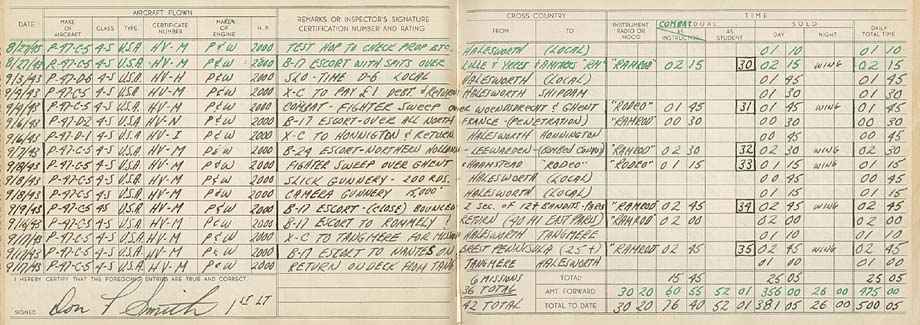 AIRCRAFT FLOWN CROSS COUNTRY TIME
DATE MAKE OF AIRCRAFT CLASS TYPE CERTIFICATE NUMBER MAKE OF ENGINE H.P. REMARKS OR INSPECTOR'S SIGNATURE CERTIFICATION NUMBER AND RATING FROM TO INSTRUMENT RADIO OR HOOD COMBAT DUAL AS INSTRUCTOR AS STUDENT SOLO DAY NIGHT DAILY TOTAL TIME
8/27/43 P-47-C-5 4-S U.S.A. HV-M P&W 2000 TEST HOP TO CHECK PROP ETC. HALESWORTH (LOCAL) 01 10 01 10
8/27/43 P-47-C-5 4-S U.S.A. HV-M P&W 2000 B-17 ESCORT WITH SPITS OVER LILLE "RAMROD" 02 15 30 02 15 WING 02 15
9/3/43 P-47-D-6 4-S U.S.A. HV-H P&W 2000 SLO-TIME D-6 LOCAL HALESWORTH (LOCAL) 01 45 01 45
9/4/43 P-47-C-5 4-S U.S.A. HV-M P&W 2000 X-C TO PAY £1 DEBT & RETURN HALESWORTH SHIPDAM 01 30 01 30
9/4/43 P-47-C-5 4-S U.S.A. HV-M P&W 2000 COMBAT - FIGHTER SWEEP OVER WOENSDRECHT & GHENT "RODEO" 01 45 31 01 45 WING 01 45
9/6/43 P-47-D-2 4-S U.S.A. HV-N P&W 2000 B-17 ESCORT-OVER ALL NORTH FRANCE-(PENETRATION) "RAMROD" 00 30 00 30 00 30
9/6/43 P-47-D-1 4-S U.S.A. HV-I P&W 2000 X-C TO HONNIGTON & RETURN. HALESWORTH HONNINGTON 00 45 00 45
9/7/43 P-47-C-5 4-S U.S.A. HV-M P&W 2000 B-24 ESCORT-NORTHERN HOLLAND -LEEWARDEN- "RAMROD" 02 30 32 02 30 WING 02 30
9/8/43 P-47-C-5 4-S U.S.A. HV-M P&W 2000 FIGHTER SWEEP OVER GHENT "RODEO" "RODEO" 01 15 33 01 15 WING 01 15
9/8/43 P-47-C-5 4-S U.S.A. HV-M P&W 2000 SLICK GUNNERY - 200 RDS. HALESWORTH (LOCAL) 00 45 00 45
9/8/43 P-47-C-5 4-S U.S.A. HV-M P&W 2000 CAMERA GUNNERY 15,000' HALESWORTH (LOCAL) 01 15 01 15
9/9/43 P-47-C-5 4-S U.S.A. HV-M P&W 2000 B-17 ESCORT-(CLOSE) BOUNCED 2 SEC. OF 12+ BANDITS-PARIS "RAMROD" 02 45 34 02 45 WING 02 45
9/16/43 P-47-C-5 4-S U.S.A. HV-M P&W 2000 B-17 ESCORT TO ROMMELY & RETURN (40 MI EAST PARIS) "RAMROD" 02 00 02 00 02 00
9/17/43 P-47-C-5 4-S U.S.A. HV-M P&W 2000 X-C TO TANGMERE FOR MISSION HALESWORTH TANGMERE 01 10 01 10
9/17/43 P-47-C-5 4-S U.S.A. HV-M P&W 2000 B-17 ESCORT TO NANTES ON BREST PENINSULA "RAMROD" 02 45 35 02 45 WING 02 45
9/17/43 P-47-C-5 4-S U.S.A. HV-M P&W 2000 RETURN ON DECK FROM TANG. TANGMERE HALESWORTH 01 00 01 00
I HEREBY CERTIFY THAT THE FOREGOING ENTRIES ARE TRUE AND CORRECT.
6 MISSIONS TOTAL 15 45 25 05 25 05
36 TOTAL AMT. FORWARD 30 20 60 55 52 01 356 00 26 00 475 00
SIGNED Don P Smith 1st LT
42 TOTAL TOTAL TO DATE 30 20 76 40 52 01 381 05 26 00 500 05